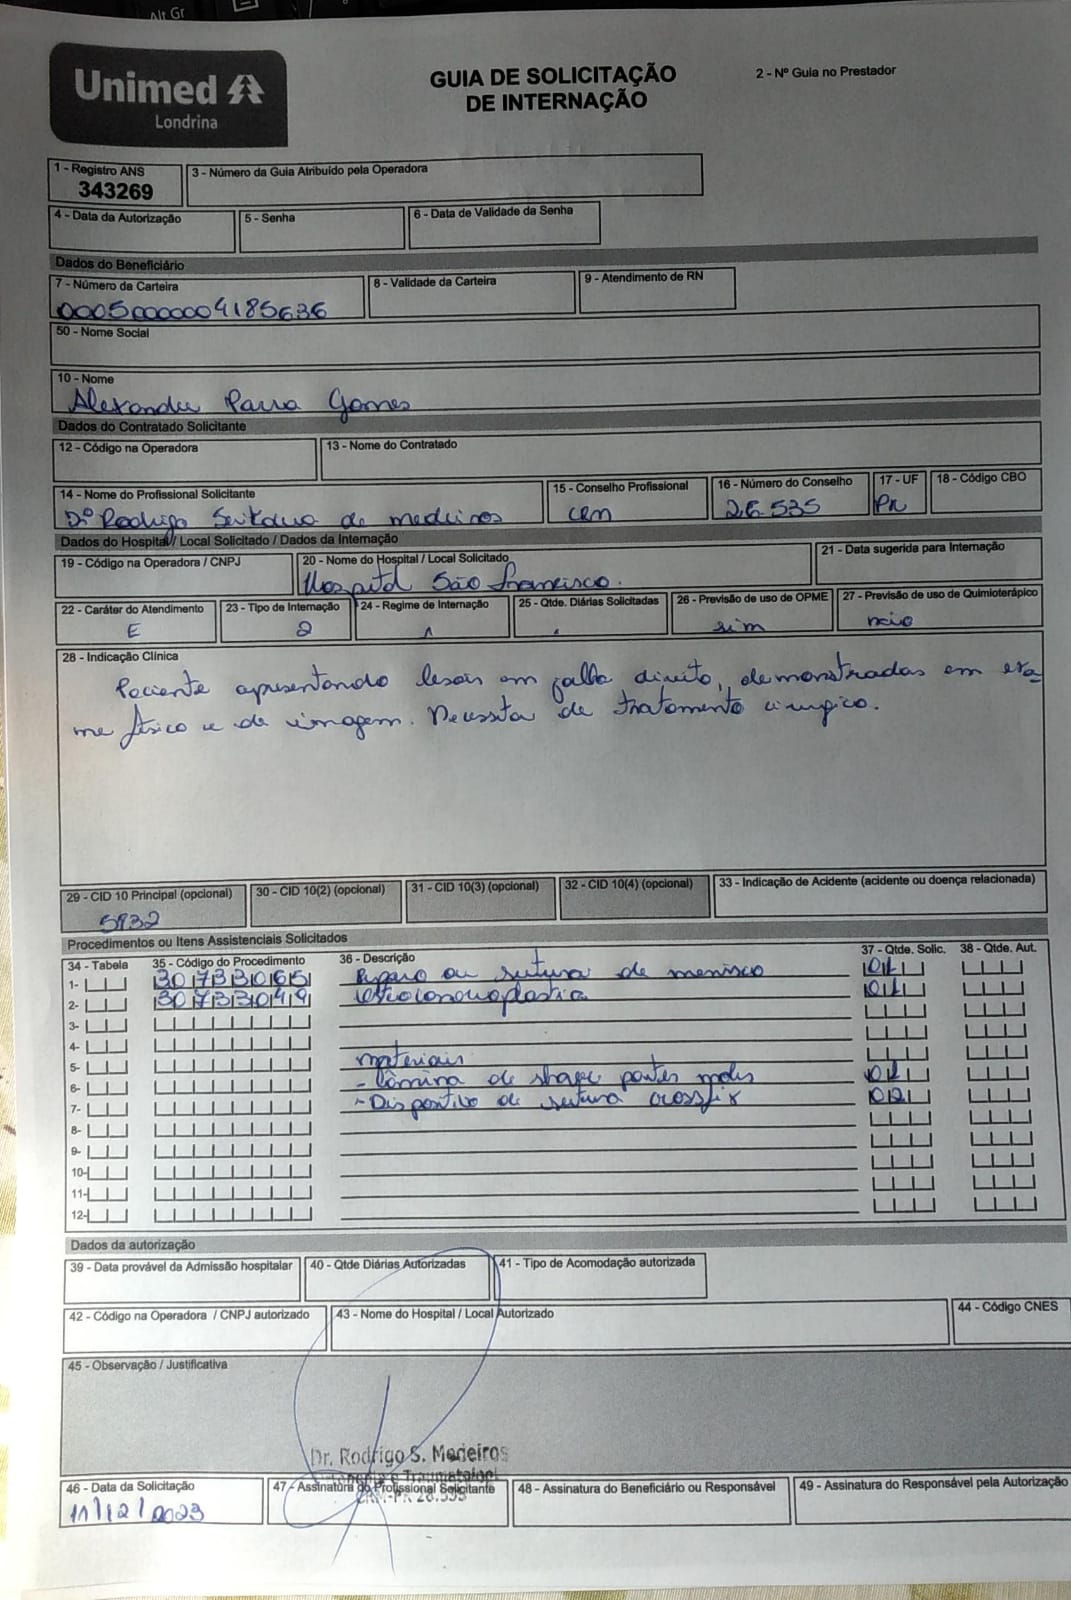 Alt Gr
Unimed
Londrina
GUIA DE SOLICITAÇÃO
DE INTERNAÇÃO
2 - Nº Guia no Prestador
1 - Registro ANS
343269
3 - Número da Guia Atribuído pela Operadora
4 - Data da Autorização
5 - Senha
6 - Data de Validade da Senha
Dados do Beneficiário
7 - Número da Carteira
8 - Validade da Carteira
9 - Atendimento de RN
00050000004185636
50 - Nome Social
10 - Nome
Alexandre Parra Gomes
Dados do Contratado Solicitante
12 - Código na Operadora
13 - Nome do Contratado
14 - Nome do Profissional Solicitante
15 - Conselho Profissional
16 - Número do Conselho
17 - UF
18 - Código CBO
Drº Rodrigo de medeiros
crm
26.535
PR
Dados do Hospital / Local Solicitado / Dados da Internação
19 - Código na Operadora / CNPJ
20 - Nome do Hospital / Local Solicitado
21 - Data sugerida para Internação
Hospital São Francisco.
22 - Caráter do Atendimento
23 - Tipo de Internação
24 - Regime de Internação
25 - Qtde. Diárias Solicitadas
26 - Previsão de uso de OPME
27 - Previsão de uso de Quimioterápico
E
2
1
sim
não
28 - Indicação Clínica
Paciente apresentando lesão em direito, demonstradas em exa
me físico e de imagem. Necessita de tratamento cirurgico.
29 - CID 10 Principal (opcional)
30 - CID 10(2) (opcional)
31 - CID 10(3) (opcional)
32 - CID 10(4) (opcional)
33 - Indicação de Acidente (acidente ou doença relacionada)
S832
Procedimentos ou Itens Assistenciais Solicitados
34 - Tabela
35 - Código do Procedimento
36 - Descrição
37 - Qtde. Solic.
38 - Qtde. Aut.
1- 30733065 Reparo ou sutura de menisco 01
2- 30733049 osteocondroplastia 01
3-
4-
5- materiais
6- - Lâmina de shaver partes moles 01
7- - Dispositivo de sutura crossfix 02
8-
9-
10-
11-
12-
Dados da autorização
39 - Data provável da Admissão hospitalar
40 - Qtde Diárias Autorizadas
41 - Tipo de Acomodação autorizada
42 - Código na Operadora / CNPJ autorizado
43 - Nome do Hospital / Local Autorizado
44 - Código CNES
45 - Observação / Justificativa
Dr. Rodrigo S. Medeiros
46 - Data da Solicitação
47 - Assinatura do Profissional Solicitante
48 - Assinatura do Beneficiário ou Responsável
49 - Assinatura do Responsável pela Autorização
11/12/2023